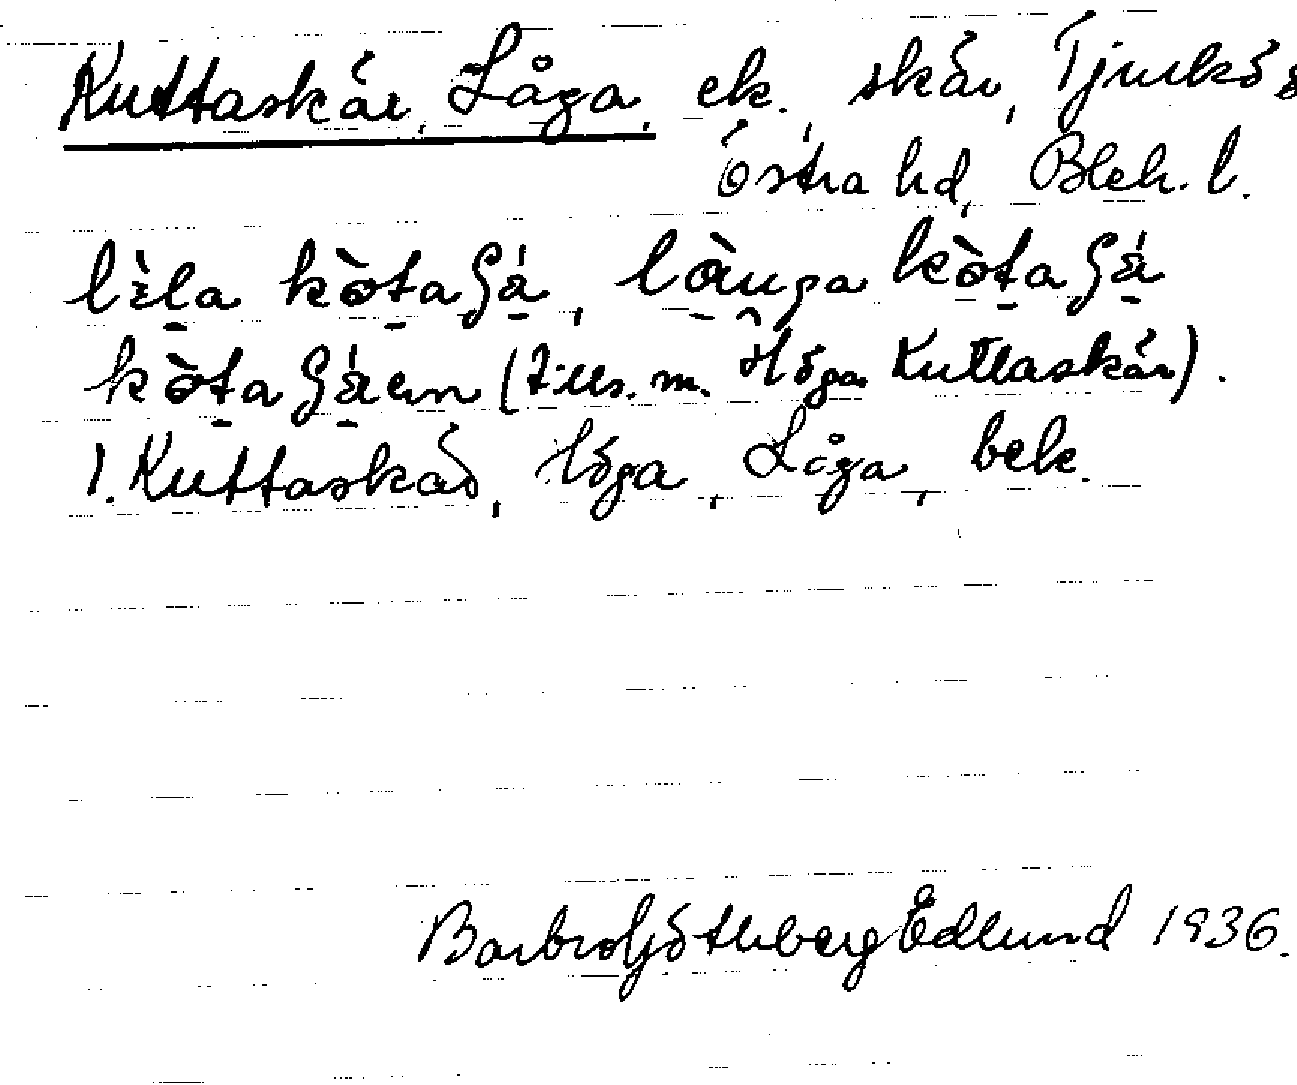 Kuttaskär, Låga, ek. skär, Tjurkö s
Östra hd, Blek. l.
lìla kòtaʃä́, làuga kòtaʃä́
kòtaʃä́en (tills. m. Höga Kuttaskär).
1. Kuttaskär, Höga, Låga, bek.
Barbro Göthberg Edlund 1936.